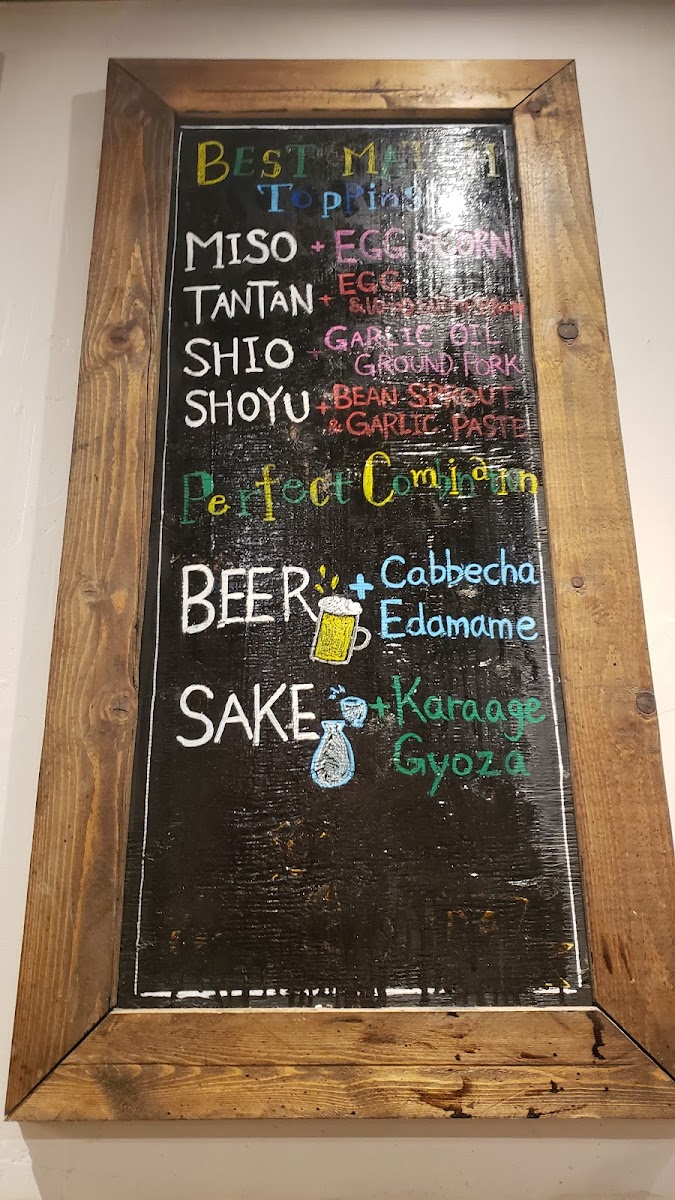 BEST MATCH
Toppings
MISO + EGG & CORN
TANTAN + EGG
&
SHIO + GARLIC OIL
GROUND PORK
SHOYU + BEAN SPROUT
& GARLIC PASTE
Perfect Combination
BEER + Cabbecha
Edamame
SAKE + Karaage
Gyoza